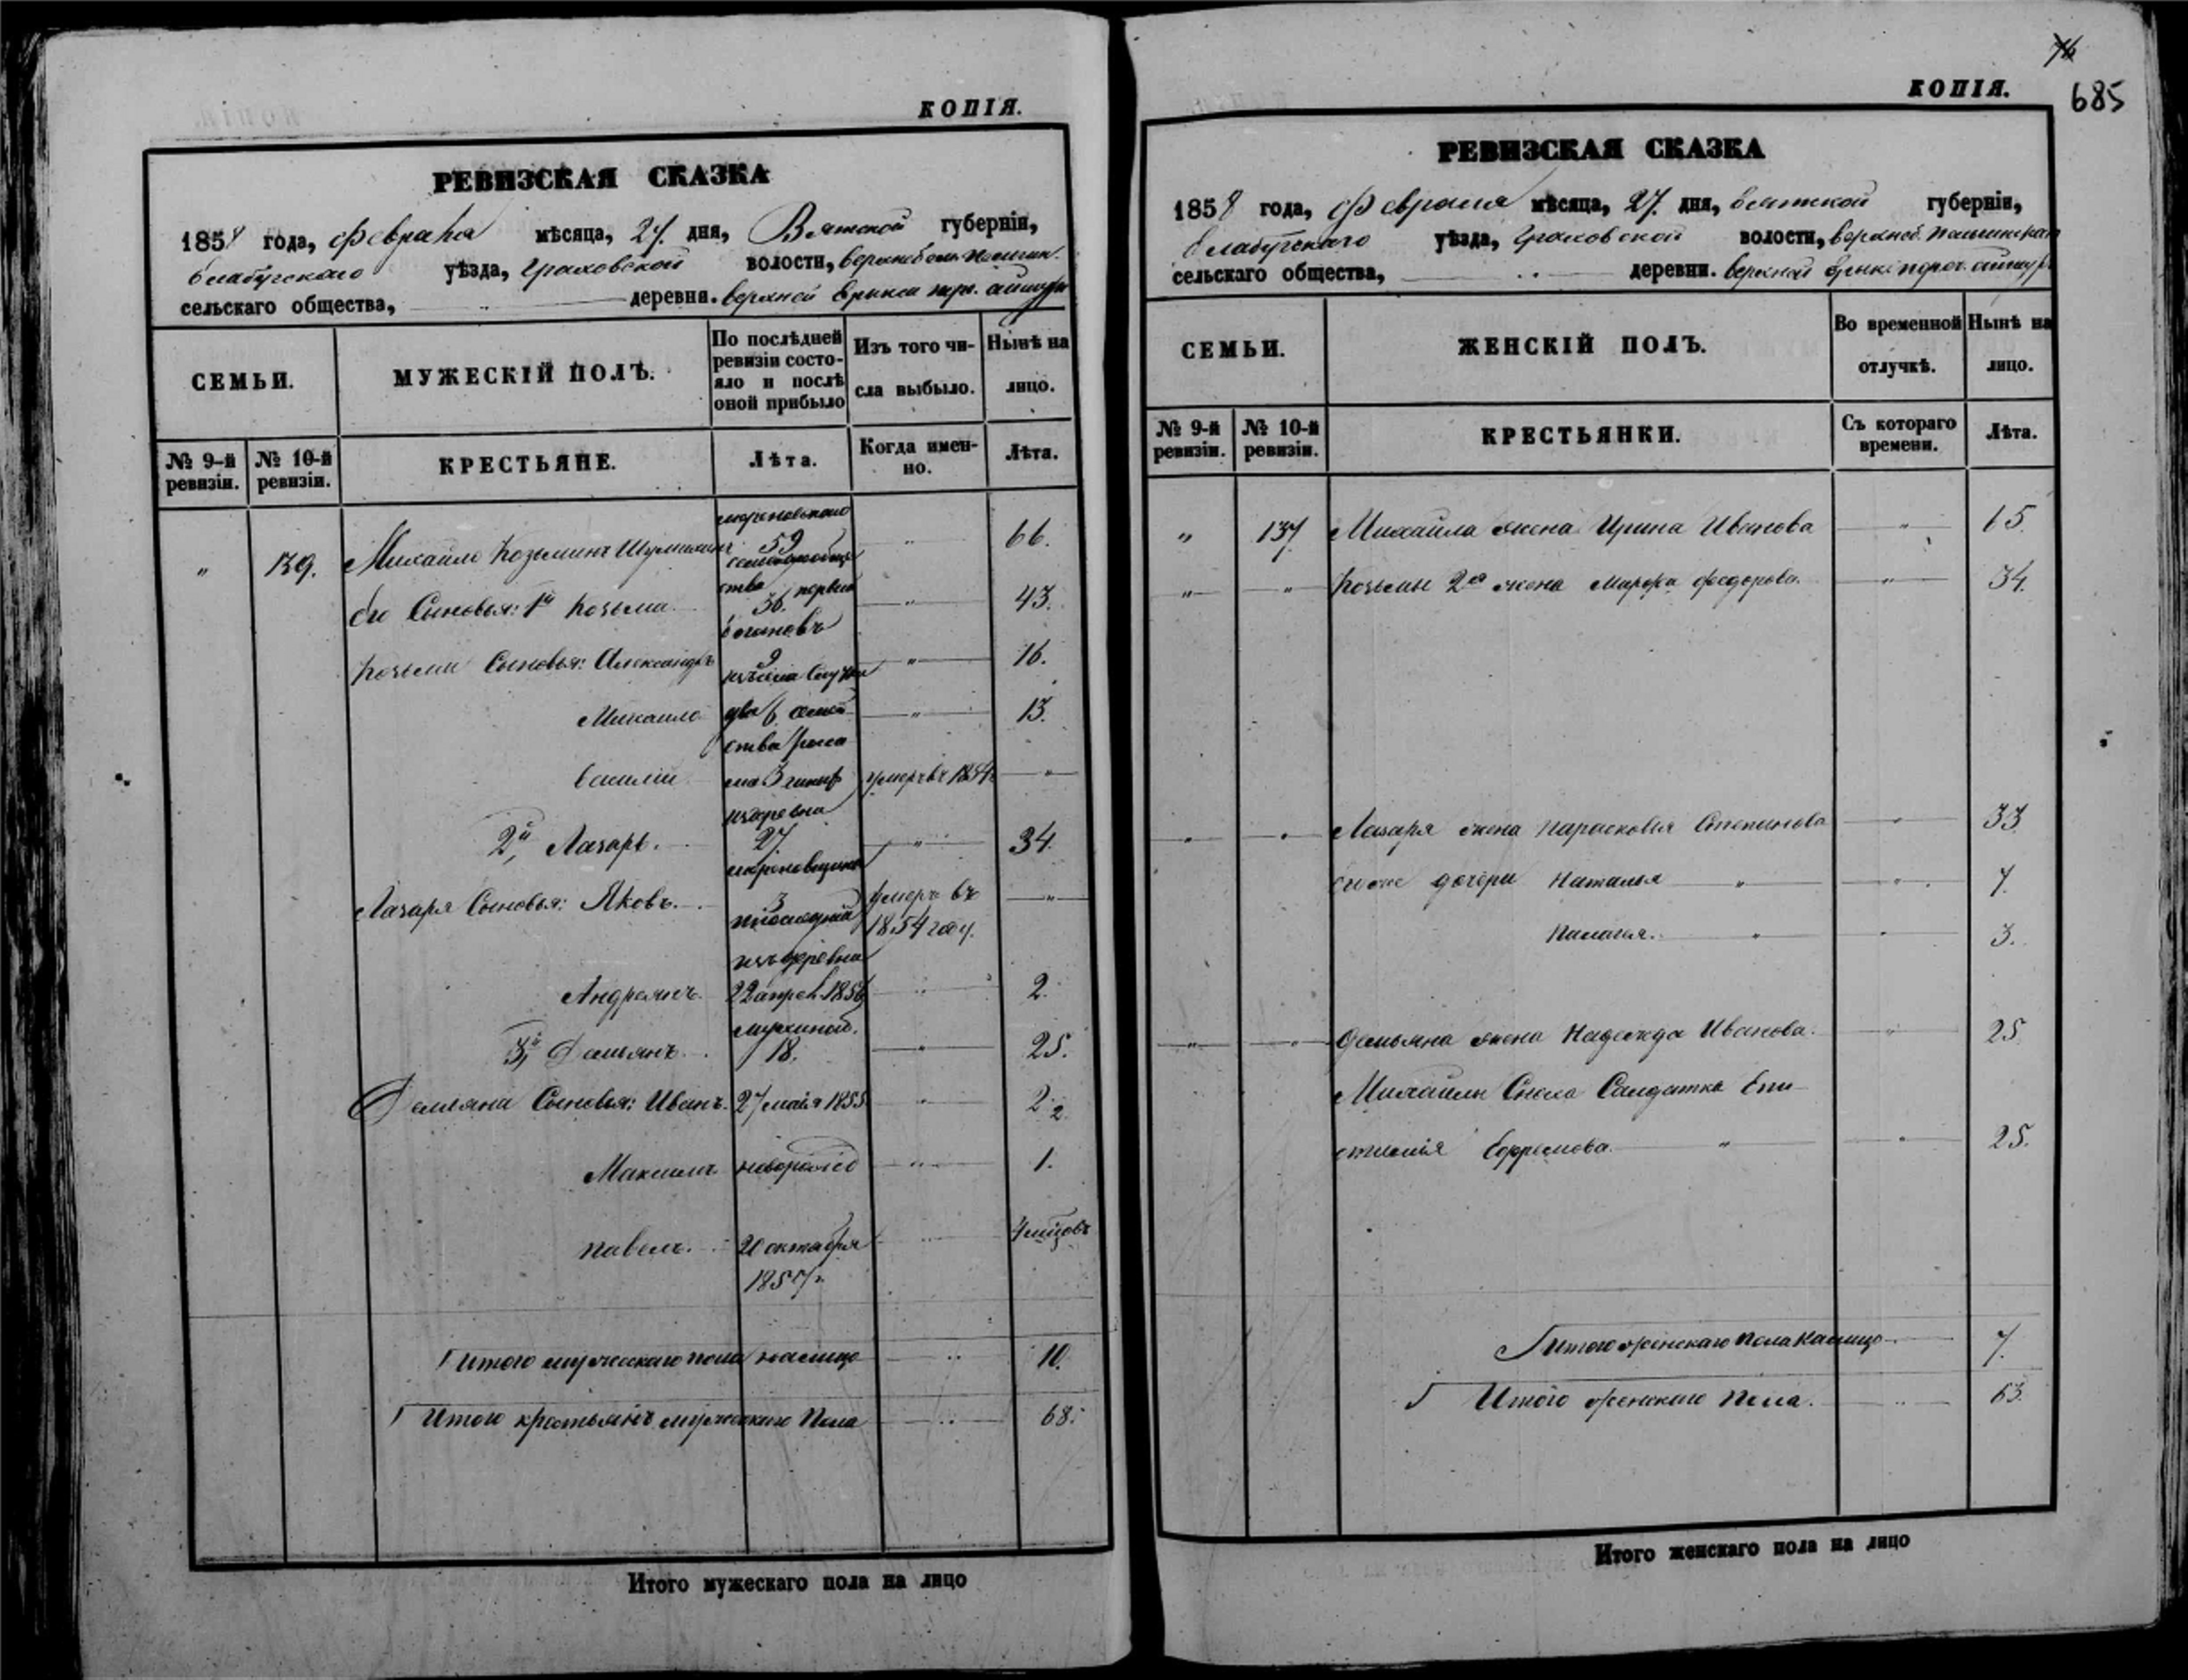 КОПІЯ.
РЕВИЗСКАЯ СКАЗКА
1858 года, февраля мѣсяца, 27. дня, Вятской губерніи,
Елабугскаго уѣзда, Граховской волости,
сельскаго общества, деревня. верхней
СЕМЬИ.
МУЖЕСКІЙ ПОЛЪ.
По послѣдней ревизіи состо-
яло и послѣ
оной прибыло
Изъ того чи-
сла выбыло.
Нынѣ на
лицо.
№ 9-й
ревизіи.
№ 10-й
ревизіи.
КРЕСТЬЯНЕ.
Лѣта.
Когда имен-
но.
Лѣта.
" 139. Михайло Козьминъ 59 " 66.
Его Сыновья: 1й Козьма 36. " 43.
Козьмы Сыновья: Александръ 9 " 16.
Михаило 6 " 13.
Василій 3 умеръ въ 1854 "
2й, Лазарь. 27. " 34.
Лазаря Сыновья: Яковъ. 3 умеръ въ "
1854 году.
изъ деревни
Андреянъ. 22 апрел 1856 " 2.
3й, Демьянъ 18. " 25.
Демьяна Сыновья: Иванъ. 27 мая 1855 " 2.
Максимъ " 1.
Павелъ. 20 октября "
1857 г.
Итого мужескаго пола налицо " 10.
Итого крестьянъ мужескаго Пола " 68.
Итого мужескаго пола на лицо
КОПІЯ.
685
РЕВИЗСКАЯ СКАЗКА
1858 года, февраля мѣсяца, 27. дня, вятской губерніи,
Елабугскаго уѣзда, Граховской волости,
сельскаго общества, деревни. верхней
СЕМЬИ.
ЖЕНСКІЙ ПОЛЪ.
Во временной
отлучкѣ.
Нынѣ на
лицо.
№ 9-й
ревизіи.
№ 10-й
ревизіи.
КРЕСТЬЯНКИ.
Съ котораго
времени.
Лѣта.
" 139 Михайла жена Ирина Иванова " 65.
" " Козьмы 2я жена Марфа федорова. " 34.
" " Лазаря жена Парасковья Степанова " 33
его же дочери Наталья " " 7.
Палагея. " " 3.
" " Демьяна жена Надежда Иванова. " 25
Михайлы Сноха Салдатка Епи-
стимія Ефремова. " " 25.
Итого женскаго пола налицо 7.
Итого женскаго Пола. 63.
Итого женскаго пола на лицо